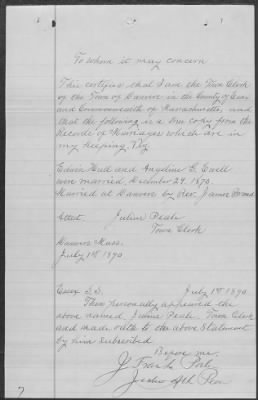 To whom it may concern
This certifies that I am the Town Clerk
of the Town of Danvers in the County of Essex
and Commonwealth of Massachusetts, and
that the following is a true copy from the
Records of Marriages which are in
my keeping. Viz
Edwin and Angeline E. Ewell
were married, December 29. 1870.
Married at Danvers by Rev. James
Attest. Julius Peale
Town Clerk
Danvers Mass.
July 1st 1890
Essex S.S. July 1st 1890
Then personally appeared the
above named Julius Peale, Town Clerk
and made oath to the above Statement
by him subscribed
Before me.
J. Frank
Justice of the Peace